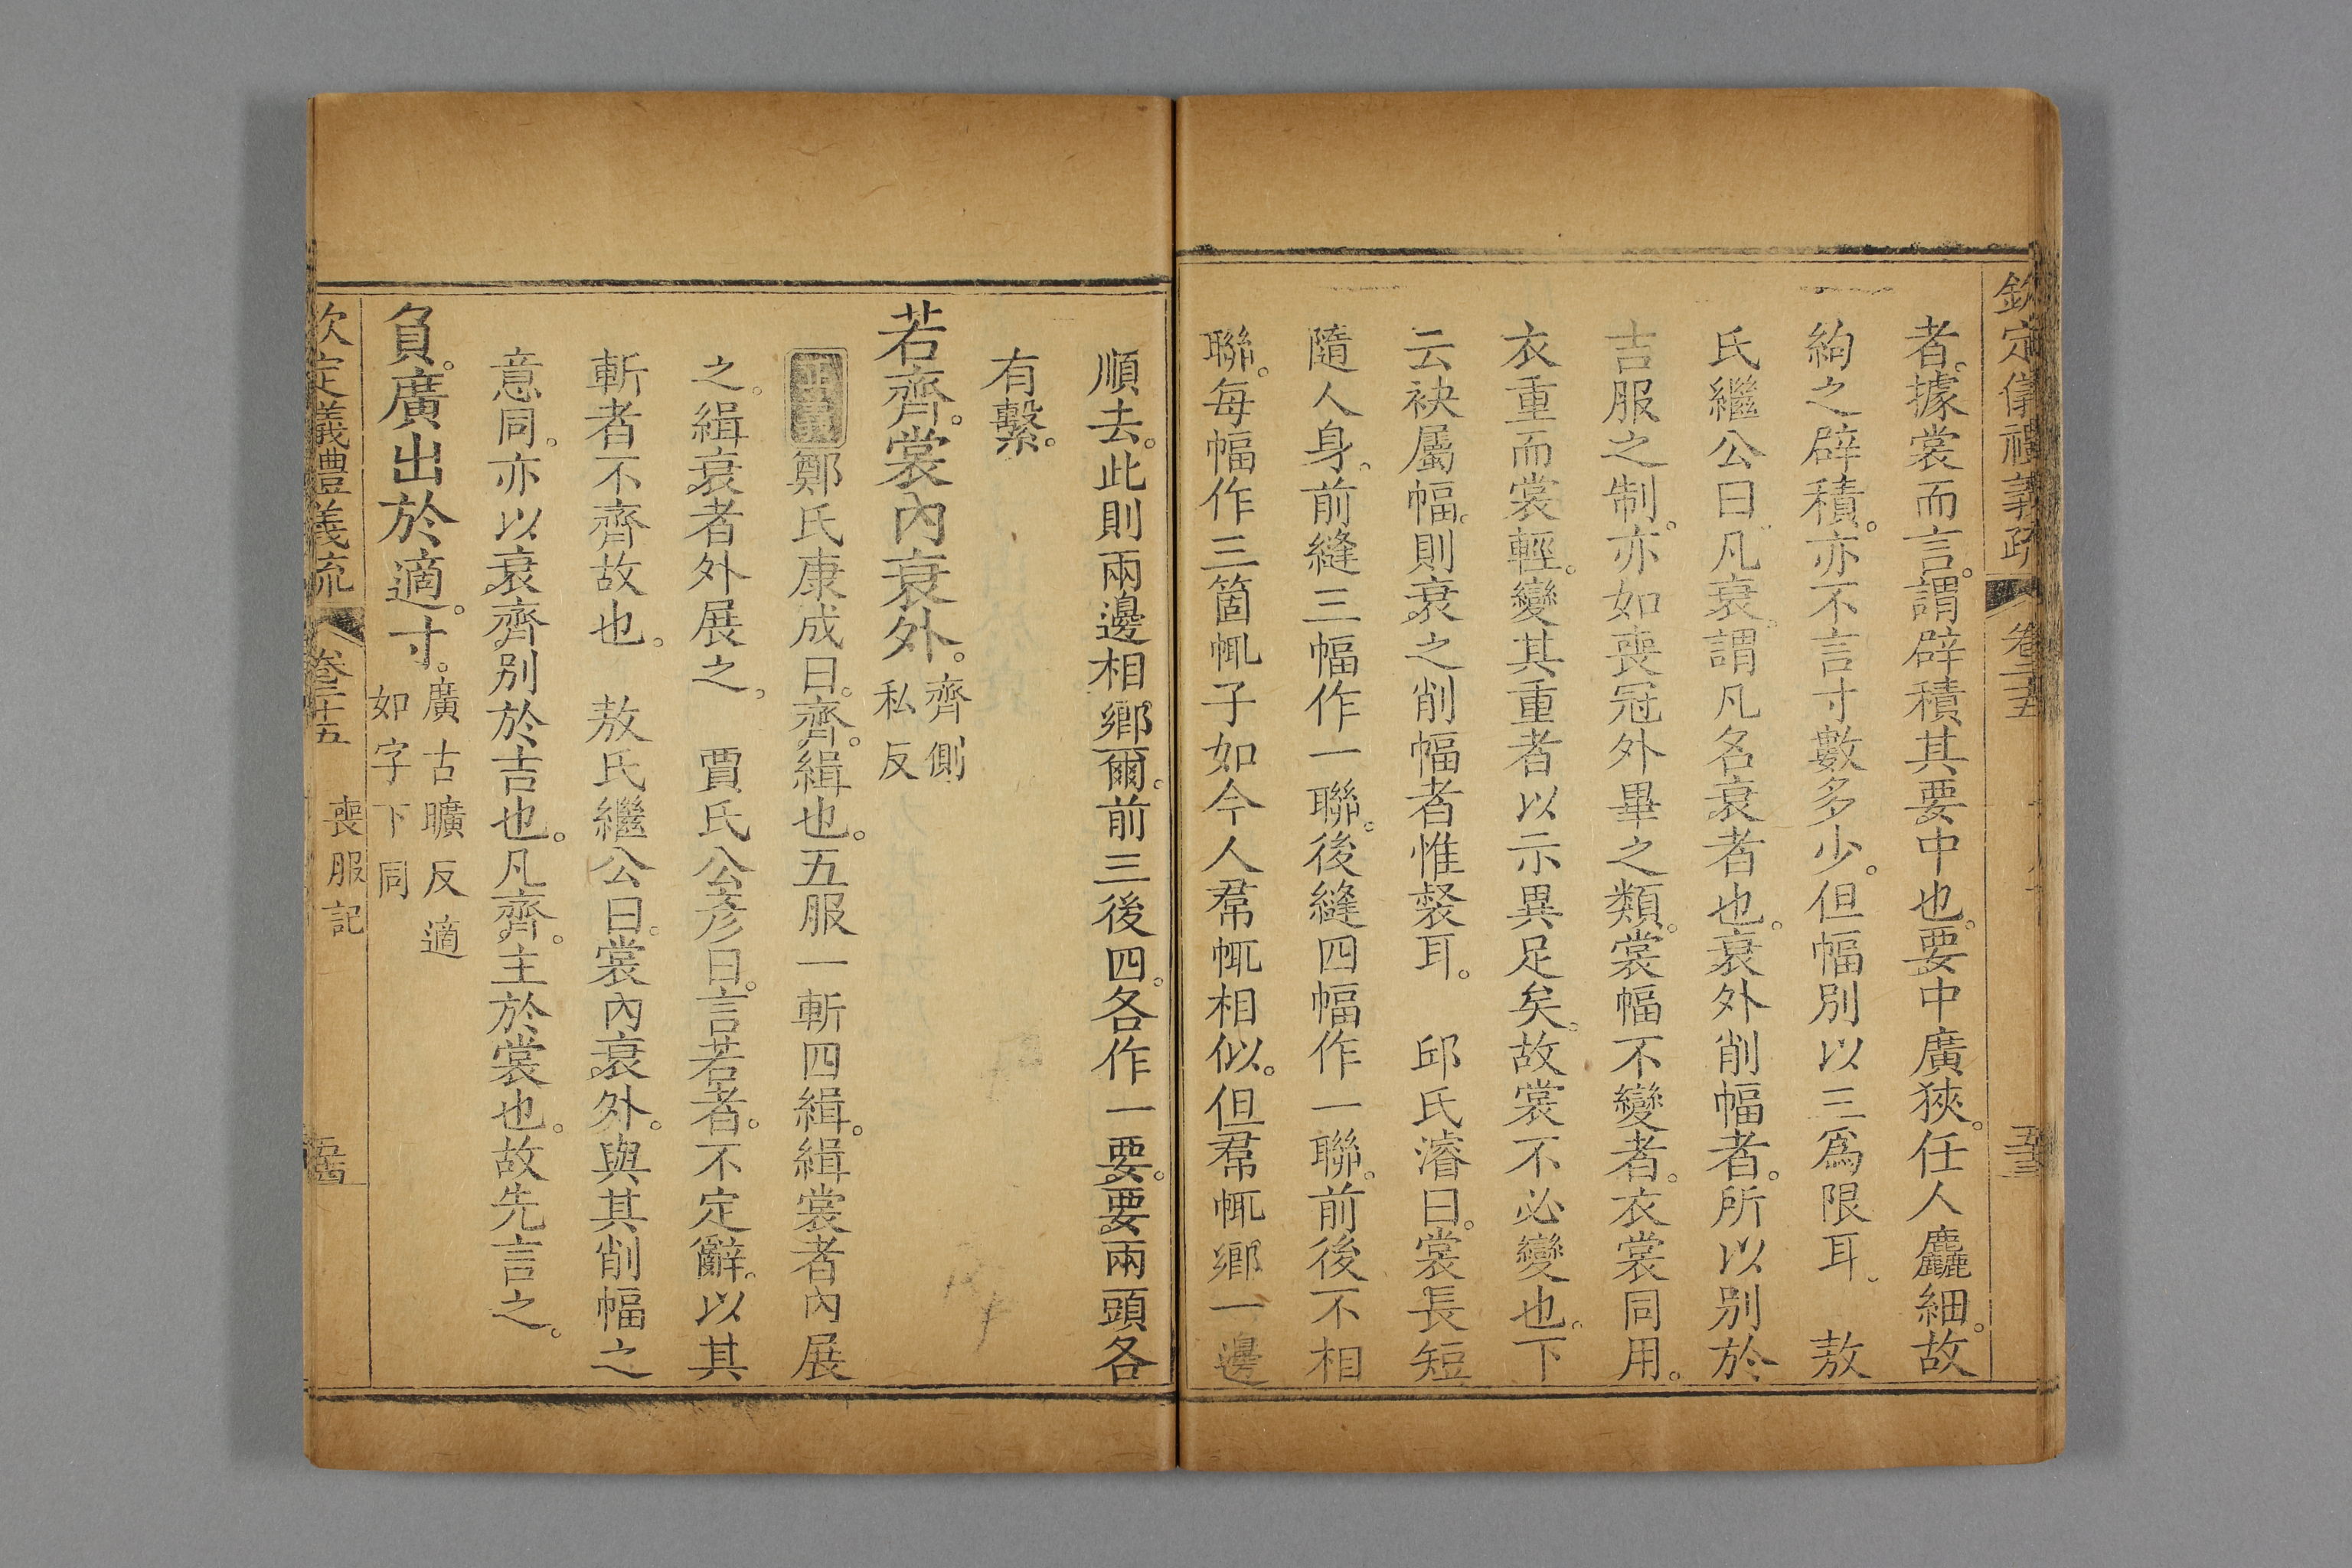 欽定儀禮義疏 卷二十五 五十三
者。據裳而言。謂辟積其要中也。要中廣狹。任人麤細。故
絇之辟積。亦不言寸數多少。但幅別以三爲限耳。 敖
氏繼公曰。凡衰。謂凡名衰者也。衰外削幅者。所以别於
吉服之制。亦如喪冠外畢之類。裳幅不變者。衣裳同用。
衣重而裳輕。變其重者以示異足矣。故裳不必變也。下
云袂屬幅。則衰之削幅者惟裻耳。 邱氏濬曰。裳長短
隨人身。前縫三幅作一聯。後縫四幅作一聯。前後不相
聯。每幅作三箇㡇子如今人帬㡇相似。但帬㡇鄉一邊
順去。此則兩邊相鄉爾。前三後四。各作一要。要兩頭各
有繫。
若齊。裳內衰外。齊側
私反
正義鄭氏康成曰。齊。緝也。五服一斬四緝。緝裳者內展
之。緝衰者外展之。 賈氏公彥曰。言若者。不定辭。以其
斬者不齊故也。 敖氏繼公曰。裳內衰外。與其削幅之
意同。亦以衰齊別於吉也。凡齊。主於裳也。故先言之。
負。廣出於適。寸。廣古曠反適
如字下同
欽定儀禮義疏 卷二十五 喪服記 五十四